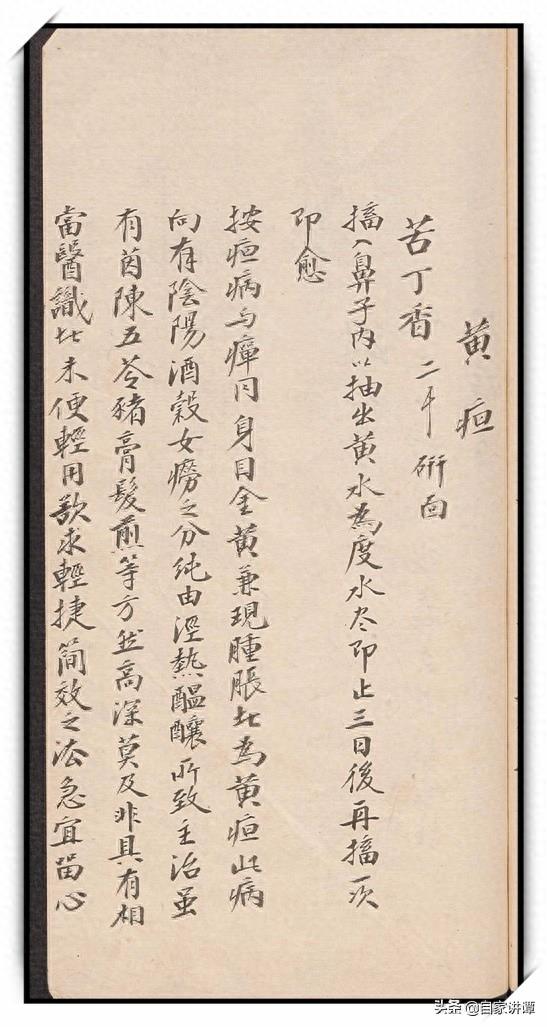 黄疸
苦丁香 二个 研面
搐入鼻子内以抽出黄水為度水尽即止三日後再搐一次
即愈
按疸病与癉同身目全黄兼現腫脹者為黄疸此病
向有陰陽酒穀女癆之分純由溼熱醞釀所致主治虽
有茵陳五苓豬膏髮煎等方然高深莫及非具有相
當醫識者未便輕用欲求輕捷简效之法急宜留心
头条 @自家讲谭